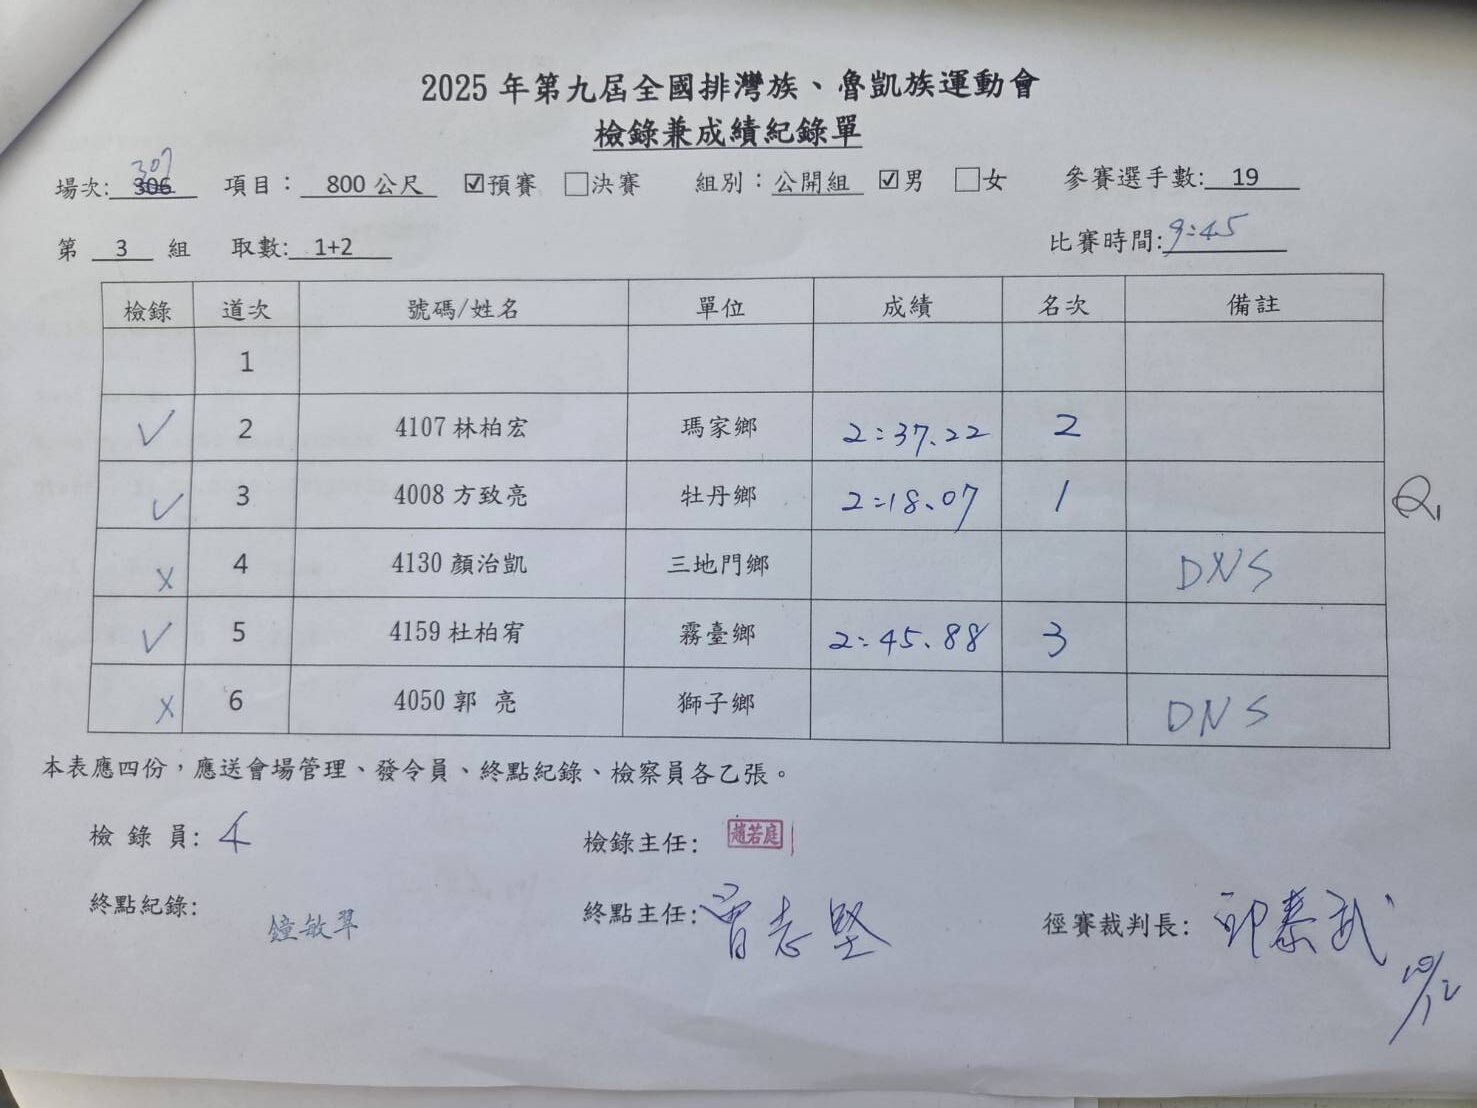 2025 年第九屆全國排灣族、魯凱族運動會
檢錄兼成績紀錄單
307
場次: 306 項目： 800 公尺 ☑預賽 □決賽 組別：公開組 ☑男 □女 參賽選手數: 19
第 3 組 取數: 1+2 比賽時間: 9:45
檢錄 道次 號碼/姓名 單位 成績 名次 備註
1
✓ 2 4107 林柏宏 瑪家鄉 2:37.22 2
✓ 3 4008 方致亮 牡丹鄉 2:18.07 1 Q1
x 4 4130 顏治凱 三地門鄉 DNS
✓ 5 4159 杜柏宥 霧臺鄉 2:45.88 3
x 6 4050 郭 亮 獅子鄉 DNS
本表應四份，應送會場管理、發令員、終點紀錄、檢察員各乙張。
檢 錄 員: 檢錄主任: 趙若庭
終點紀錄: 鐘敏翠 終點主任: 曾志堅 徑賽裁判長: 邱泰武
10/12